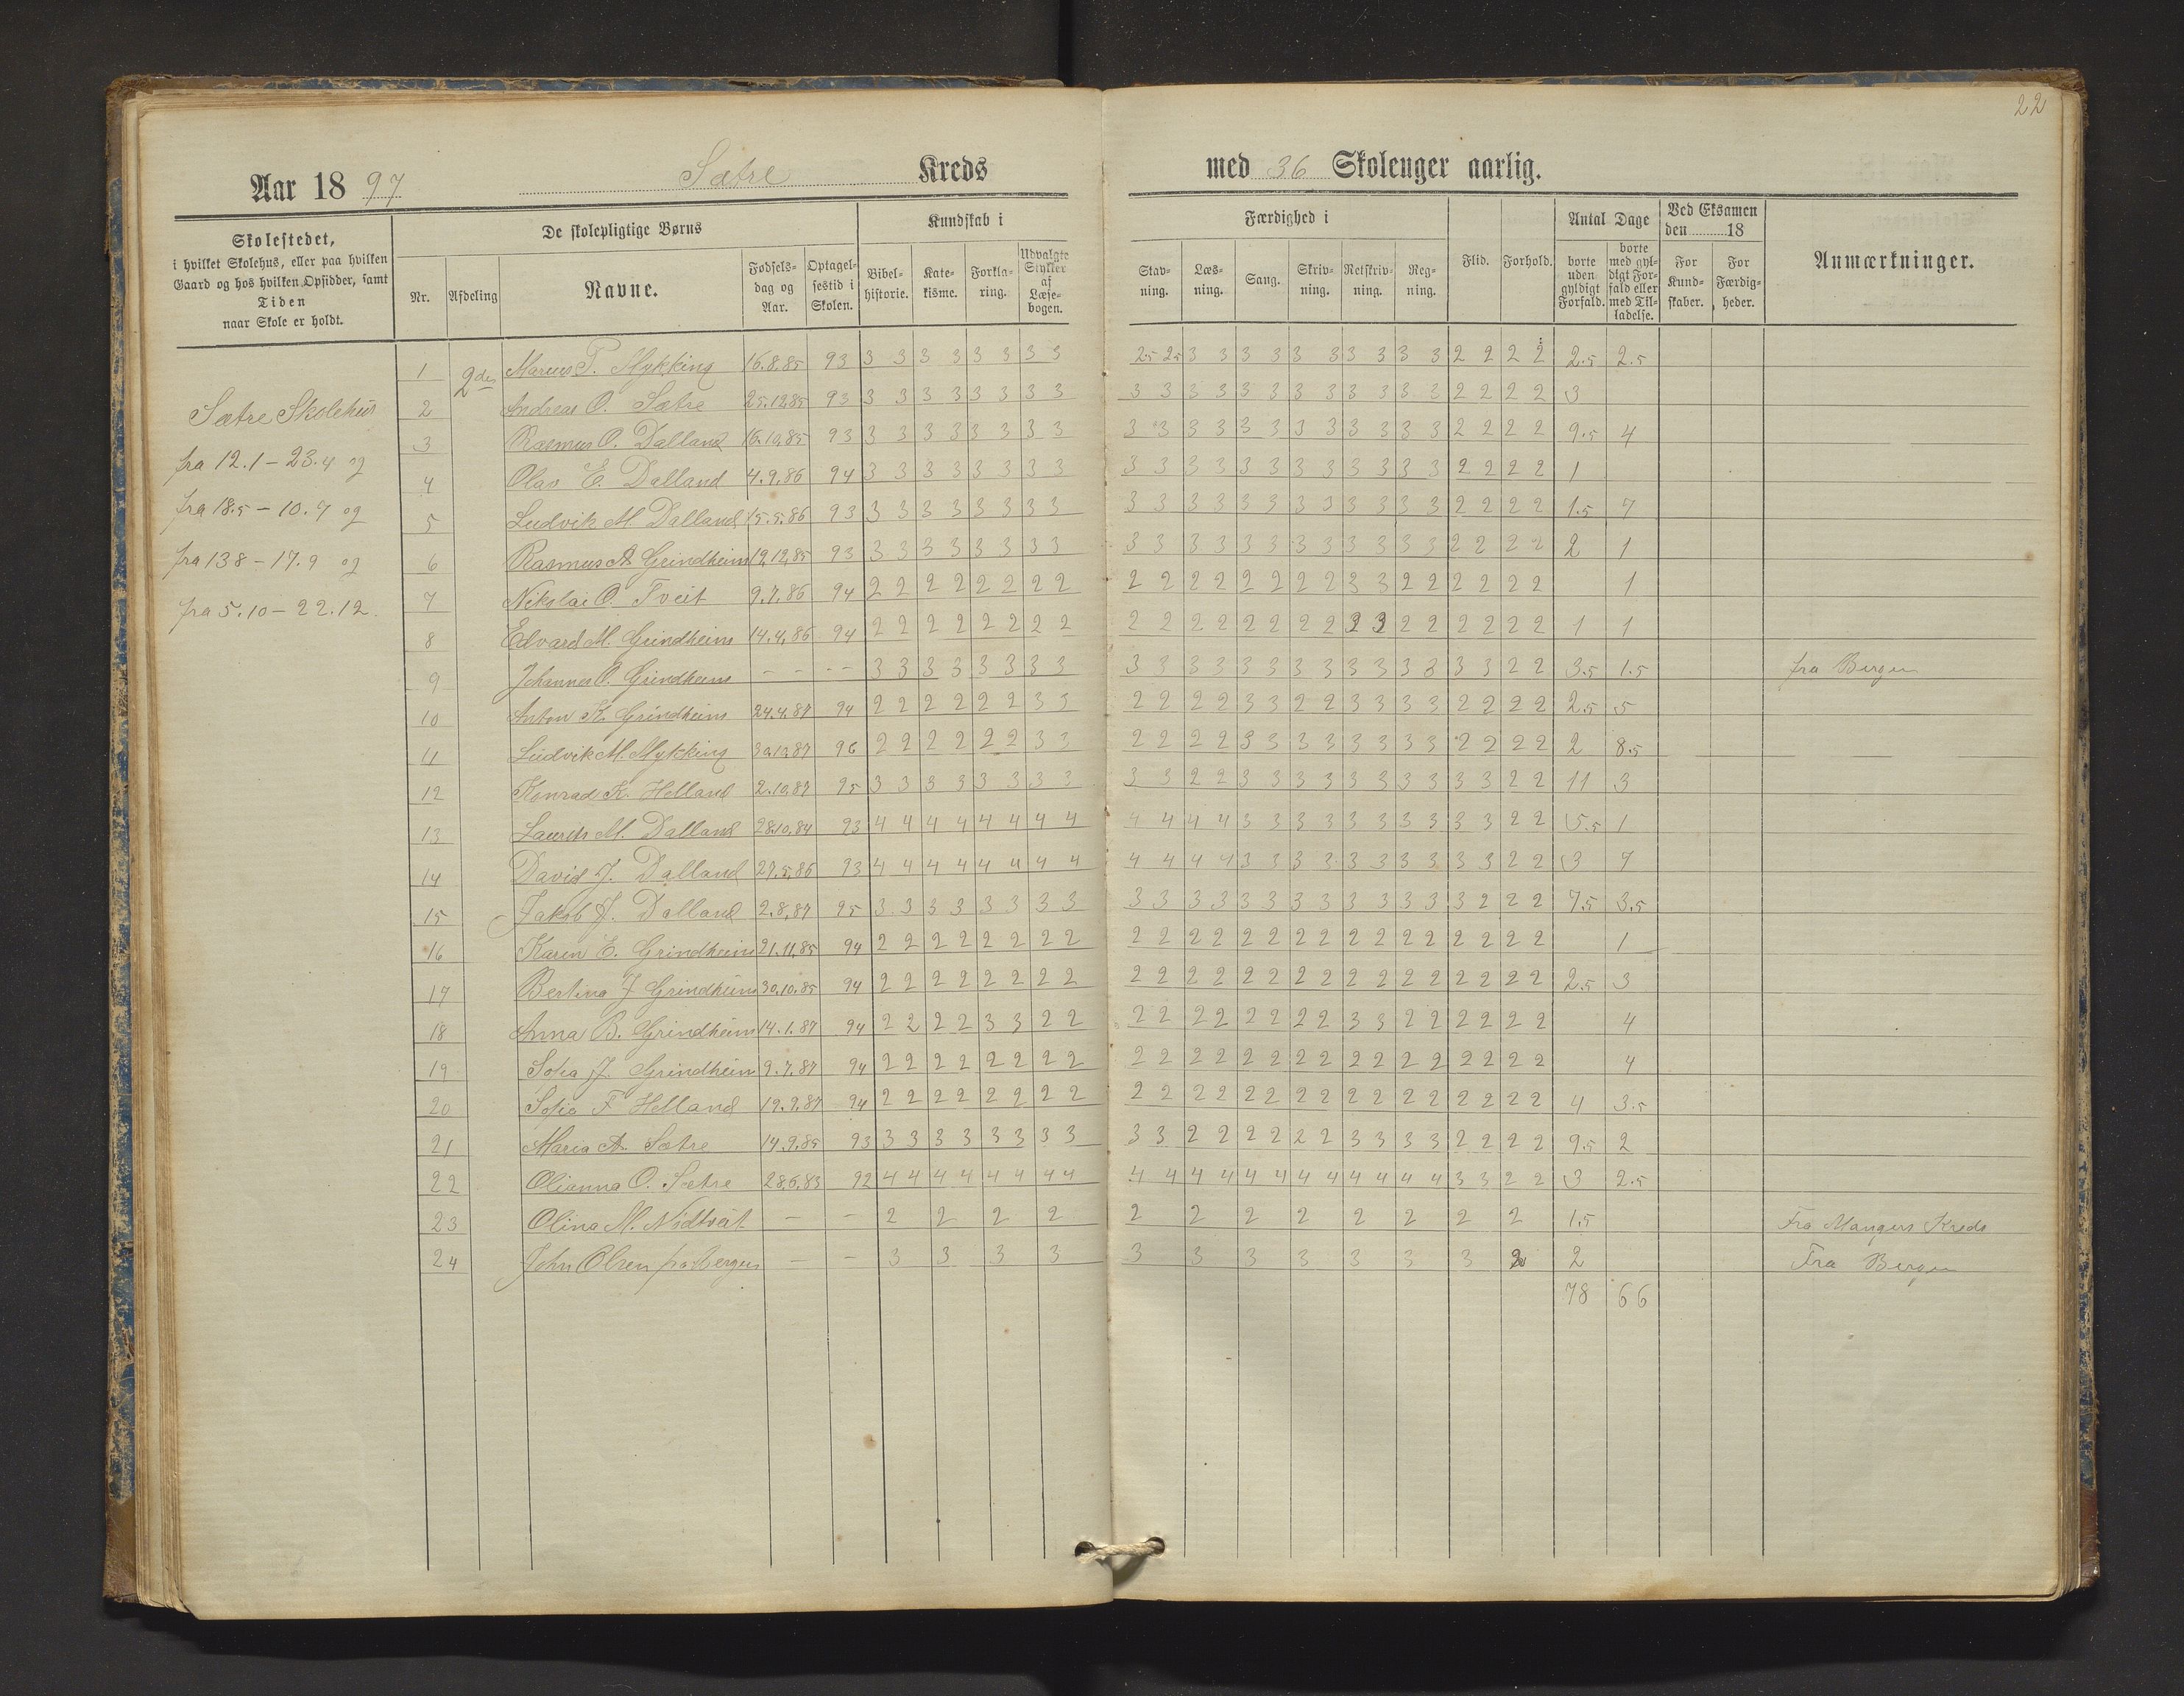 22
Aar 1897 Sætre Kreds med 36 Skoleuger aarlig.
Skolestedet,
i hvilket Skolehus, eller paa hvilken
Gaard og hos hvilken Opsidder, samt
Tiden
naar Skole er holdt.
De skolepligtige Børns
Nr.
Afdeling
Navne.
Fødsels-
dag og
Aar.
Optagel-
sestid i
Skolen.
Kundskab i
Bibel-
historie.
Kate-
kisme.
Forkla-
ring.
Udvalgte
Stykker
af
Læse-
bogen.
Færdighed i
Stav-
ning.
Læs-
ning.
Sang.
Skriv-
ning.
Retskriv-
ning.
Reg-
ning.
Flid.
Forhold.
Antal Dage
borte
uden
gyldigt
Forfald.
borte
med gyl-
digt For-
fald eller
med Til-
ladelse.
Ved Eksamen
den 18
For
Kund-
skaber.
For
Færdig-
heder.
Anmærkninger.
Sætre Skolehus
fra 12.1 - 23.4 og
fra 18.5 - 10.7 og
fra 13.8 - 17.9 og
fra 5.10 - 22.12.
2den
1 Marius P. Mykking 16.8.85 93 3 3 3 3 3 3 3 3 2.5 2.5 3 3 3 3 3 3 3 3 3 3 2 2 2 2 2.5 2.5
2 Andreas O. Sætre 25.12.85 93 3 3 3 3 3 3 3 3 3 3 3 3 3 3 3 3 3 3 3 3 2 2 2 2 3
3 Rasmus O. Dalland 16.10.85 93 3 3 3 3 3 3 3 3 3 3 3 3 3 3 3 3 3 3 3 3 2 2 2 2 9.5 4
4 Olav E. Dalland 4.9.86 94 3 3 3 3 3 3 3 3 3 3 3 3 3 3 3 3 3 3 3 3 2 2 2 2 1
5 Ludvik M. Dalland 15.5.86 93 3 3 3 3 3 3 3 3 3 3 3 3 3 3 3 3 3 3 3 3 2 2 2 2 1.5 7
6 Rasmus A. Grindheim 19.12.85 93 3 3 3 3 3 3 3 3 3 3 3 3 3 3 3 3 3 3 3 3 2 2 2 2 2 1
7 Nikolai O. Tveit 9.7.86 94 2 2 2 2 2 2 2 2 2 2 2 2 2 2 2 2 3 3 2 2 2 2 2 2 1
8 Edvard M. Grindheim 14.4.86 94 2 2 2 2 2 2 2 2 2 2 2 2 2 2 2 2 3 3 2 2 2 2 2 2 1 1
9 Johannes O. Grindheim - - - - 3 3 3 3 3 3 3 3 3 3 3 3 3 3 3 3 3 3 3 3 3 3 2 2 3.5 1.5 fra Bergen
10 Anton K. Grindheim 24.4.87 94 2 2 2 2 2 2 3 3 2 2 2 2 3 3 2 2 3 3 3 3 2 2 2 2 2.5 5
11 Ludvik M. Mykking 30.10.87 96 2 2 2 2 2 2 3 3 2 2 2 2 3 3 3 3 3 3 3 3 2 2 2 2 2 8.5
12 Konrad K. Helland 2.10.87 95 3 3 3 3 3 3 3 3 3 3 2 2 3 3 3 3 3 3 3 3 3 3 2 2 11 3
13 Laurits M. Dalland 28.10.84 93 4 4 4 4 4 4 4 4 4 4 4 4 3 3 3 3 3 3 3 3 3 3 2 2 5.5 1
14 David J. Dalland 27.5.86 93 4 4 4 4 4 4 4 4 4 4 4 4 3 3 3 3 3 3 3 3 3 3 2 2 3 7
15 Jakob J. Dalland 2.8.87 95 3 3 3 3 3 3 3 3 3 3 3 3 3 3 3 3 3 3 3 3 3 2 2 2 7.5 3.5
16 Karen E. Grindheim 21.11.85 94 2 2 2 2 2 2 2 2 2 2 2 2 2 2 2 2 2 2 2 2 2 2 2 2 1
17 Bertina J Grindheim 30.10.85 94 2 2 2 2 2 2 2 2 2 2 2 2 2 2 2 2 2 2 2 2 2 2 2 2 2.5 3
18 Anna B. Grindheim 14.1.87 94 2 2 2 2 3 3 2 2 2 2 2 2 2 2 2 2 3 3 2 2 2 2 2 2 4
19 Sofia J. Grindheim 9.7.87 94 2 2 2 2 2 2 2 2 2 2 2 2 2 2 2 2 2 2 2 2 2 2 2 2 4
20 Sofie F Helland 19.9.87 94 2 2 2 2 2 2 2 2 2 2 2 2 2 2 2 2 2 2 2 2 2 2 2 2 4 3.5
21 Maria A. Sætre 14.9.85 93 3 3 3 3 3 3 3 3 3 3 2 2 2 2 2 2 3 3 3 3 2 2 2 2 9.5 2
22 Olianna O. Sætre 28.6.83 92 4 4 4 4 4 4 4 4 4 4 4 4 4 4 4 4 4 4 4 4 3 3 2 2 3 2.5
23 Olina M. Nidtveit - - 2 2 2 2 2 2 2 2 2 2 2 2 1.5 Fra Mangers Kreds
24 John Olsen fra Bergen - - 3 3 3 3 3 3 3 3 3 3 3 2 2 Fra Bergen
78 66